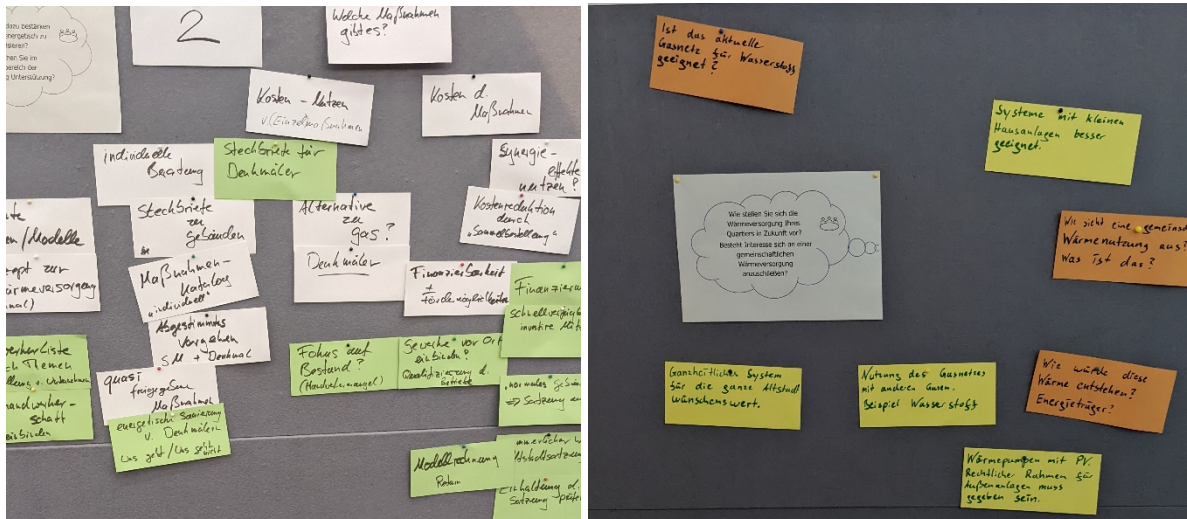 dazu bestärken
energetisch zu
sieren?
hen Sie im
bereich der
Unterstützung?
2
Welche Maßnahmen
gibt es?
Kosten - Nutzen
v. (Einzelmaßnahmen
Kosten d.
Maßnahmen
individuelle
Beratung
Steckbriefe für
Denkmäler
Synergie-
effekte
nutzen?
Steckbriefe
zu
Gebäuden
Alternative
zu
gas?
Kostenreduktion
durch
„Sammelbestellung"
n/Modelle
ept zur
ärmeversorgung
Maßnahmen-
katalog
"individuell"
Denkmäler
Finanzierbarkeit
+
Fördermöglichkeiten
Abgestimmtes
Vorgehen
SM + Denkmal
Finanzierun
Fokus auf
Bestand?
(Handwerkermangel)
Gewerke vor Ort
einbinden?
Qualifizierung d.
betriebe
werkerliste
ch Themen
andwerker-
schaft
einbinden
quasi
freigegeben
Maßnahmen
=> Satzung
energetische Sanierung
v. Denkmälern
Was geht / Was geht
nicht
Modellrechnung
Einhaltung d.
Satzung
Ist das aktuelle
Gasnetz für Wasserstoff
geeignet?
Systeme mit kleinen
Hausanlagen besser
geeignet.
Wie stellen Sie sich die
Wärmeversorgung Ihres
Quartiers in Zukunft vor?
Besteht Interesse sich an einer
gemeinschaftlichen
Wärmeversorgung
anzuschließen?
Wie sieht eine gemeinsch
Wärmenutzung aus?
Was ist das?
Ganzheitliches System
für die ganze Altstadt
wünschenswert.
Nutzung des Gasnetzes
mit anderen Gasen.
Beispiel Wasserstoff
Wie würde diese
Wärme entstehen?
Energieträger?
Wärmepumpen mit PV.
Rechtlicher Rahmen für
Außenanlagen muss
gegeben sein.